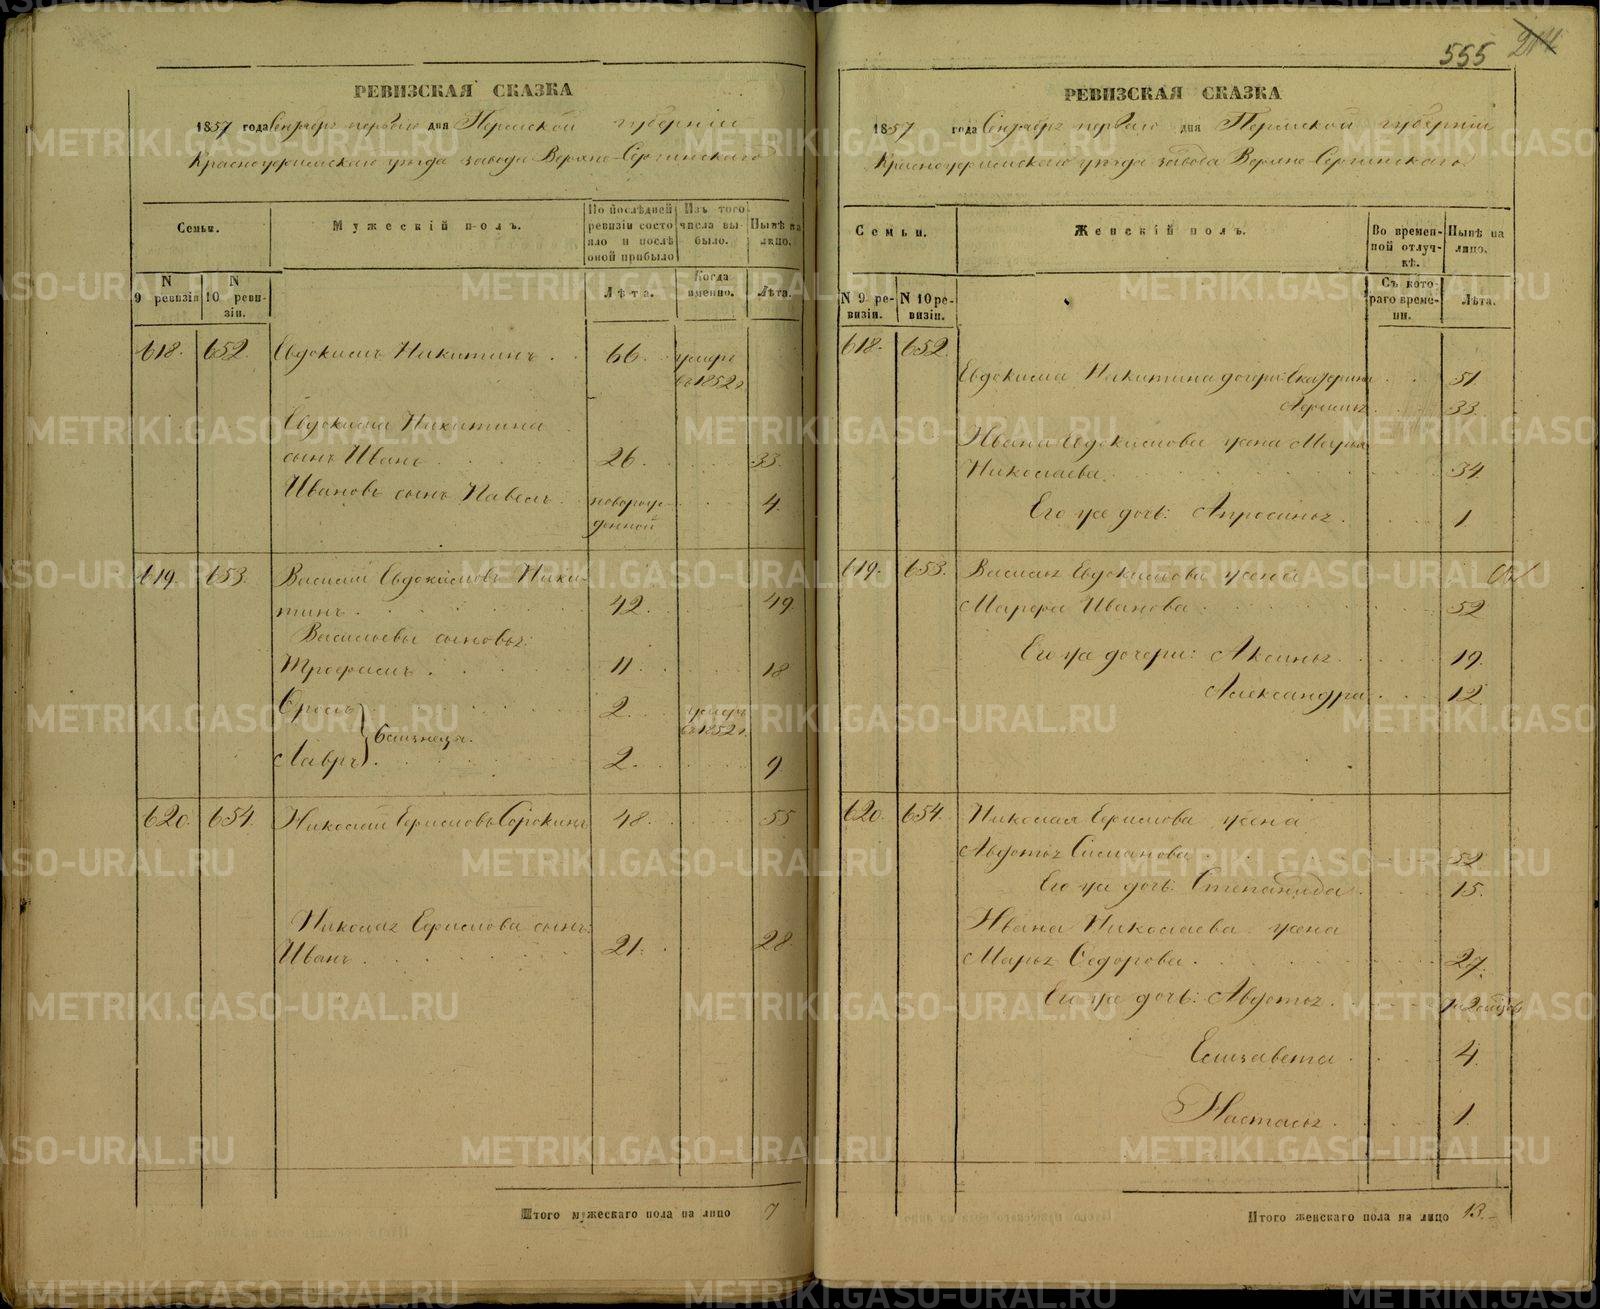 555 214
РЕВИЗСКАЯ СКАЗКА
1857 года Сентября первого дня Пермской губерніи
Красноуфимскаго уѣзда завода Верхне-Сергинскаго
Семьи.
Мужескій полъ.
По послѣдней ревизіи состояло и послѣ оной прибыло
Изъ того числа выбыло.
Нынѣ на лицо.
N 9 ревизіи
N 10 ревизіи.
Лѣта.
Когда именно.
Лѣта.
618. 652. Евдокимъ Никитинъ . 66. умеръ
въ 1852 г.
Евдокима Никитина
сынъ Иванъ 26. 33.
Ивановъ сынъ Павелъ новорож- 4.
денной
619. 653. Василій Евдокимовъ Ники-
тинъ 42. 49.
Васильевы сыновья:
Трофимъ 11. 18
Фролъ 2. умеръ
въ 1852 г.
близнецы.
Лавръ 2. 9.
620. 654. Николай Ефимовъ Сорокинъ 48. 55
Николая Ефимова сынъ:
Иванъ 21. 28
Итого мужескаго пола на лицо 7
РЕВИЗСКАЯ СКАЗКА
1857 года Сентября первого дня Пермской губерніи
Красноуфимскаго уѣзда завода Верхне-Сергинскаго
Семьи.
Женскій полъ.
Во временной отлучкѣ.
Нынѣ на лицо.
N 9 ревизіи.
N 10 ревизіи.
Съ котораго времени.
Лѣта.
618. 652.
Евдокима Никитина дочери: Екатерина 51
33.
Ивана Евдокимова жена Марья
Николаева 34.
Его же дочь: Апросинья 1
619. 653. Василья Евдокимова жена
Марфа Иванова 52
Его же дочери: Аксинья 19.
Александра 12.
620. 654. Николая Ефимова жена
Авдотья Симанова 52
Его же дочь Степанида 15.
Ивана Николаева жена
Марья Федорова 27.
Его же дочь: Авдотья
Елизавета 4.
Настасья 1.
Итого женскаго пола на лицо 13.
METRIKI.GASO-URAL.RU